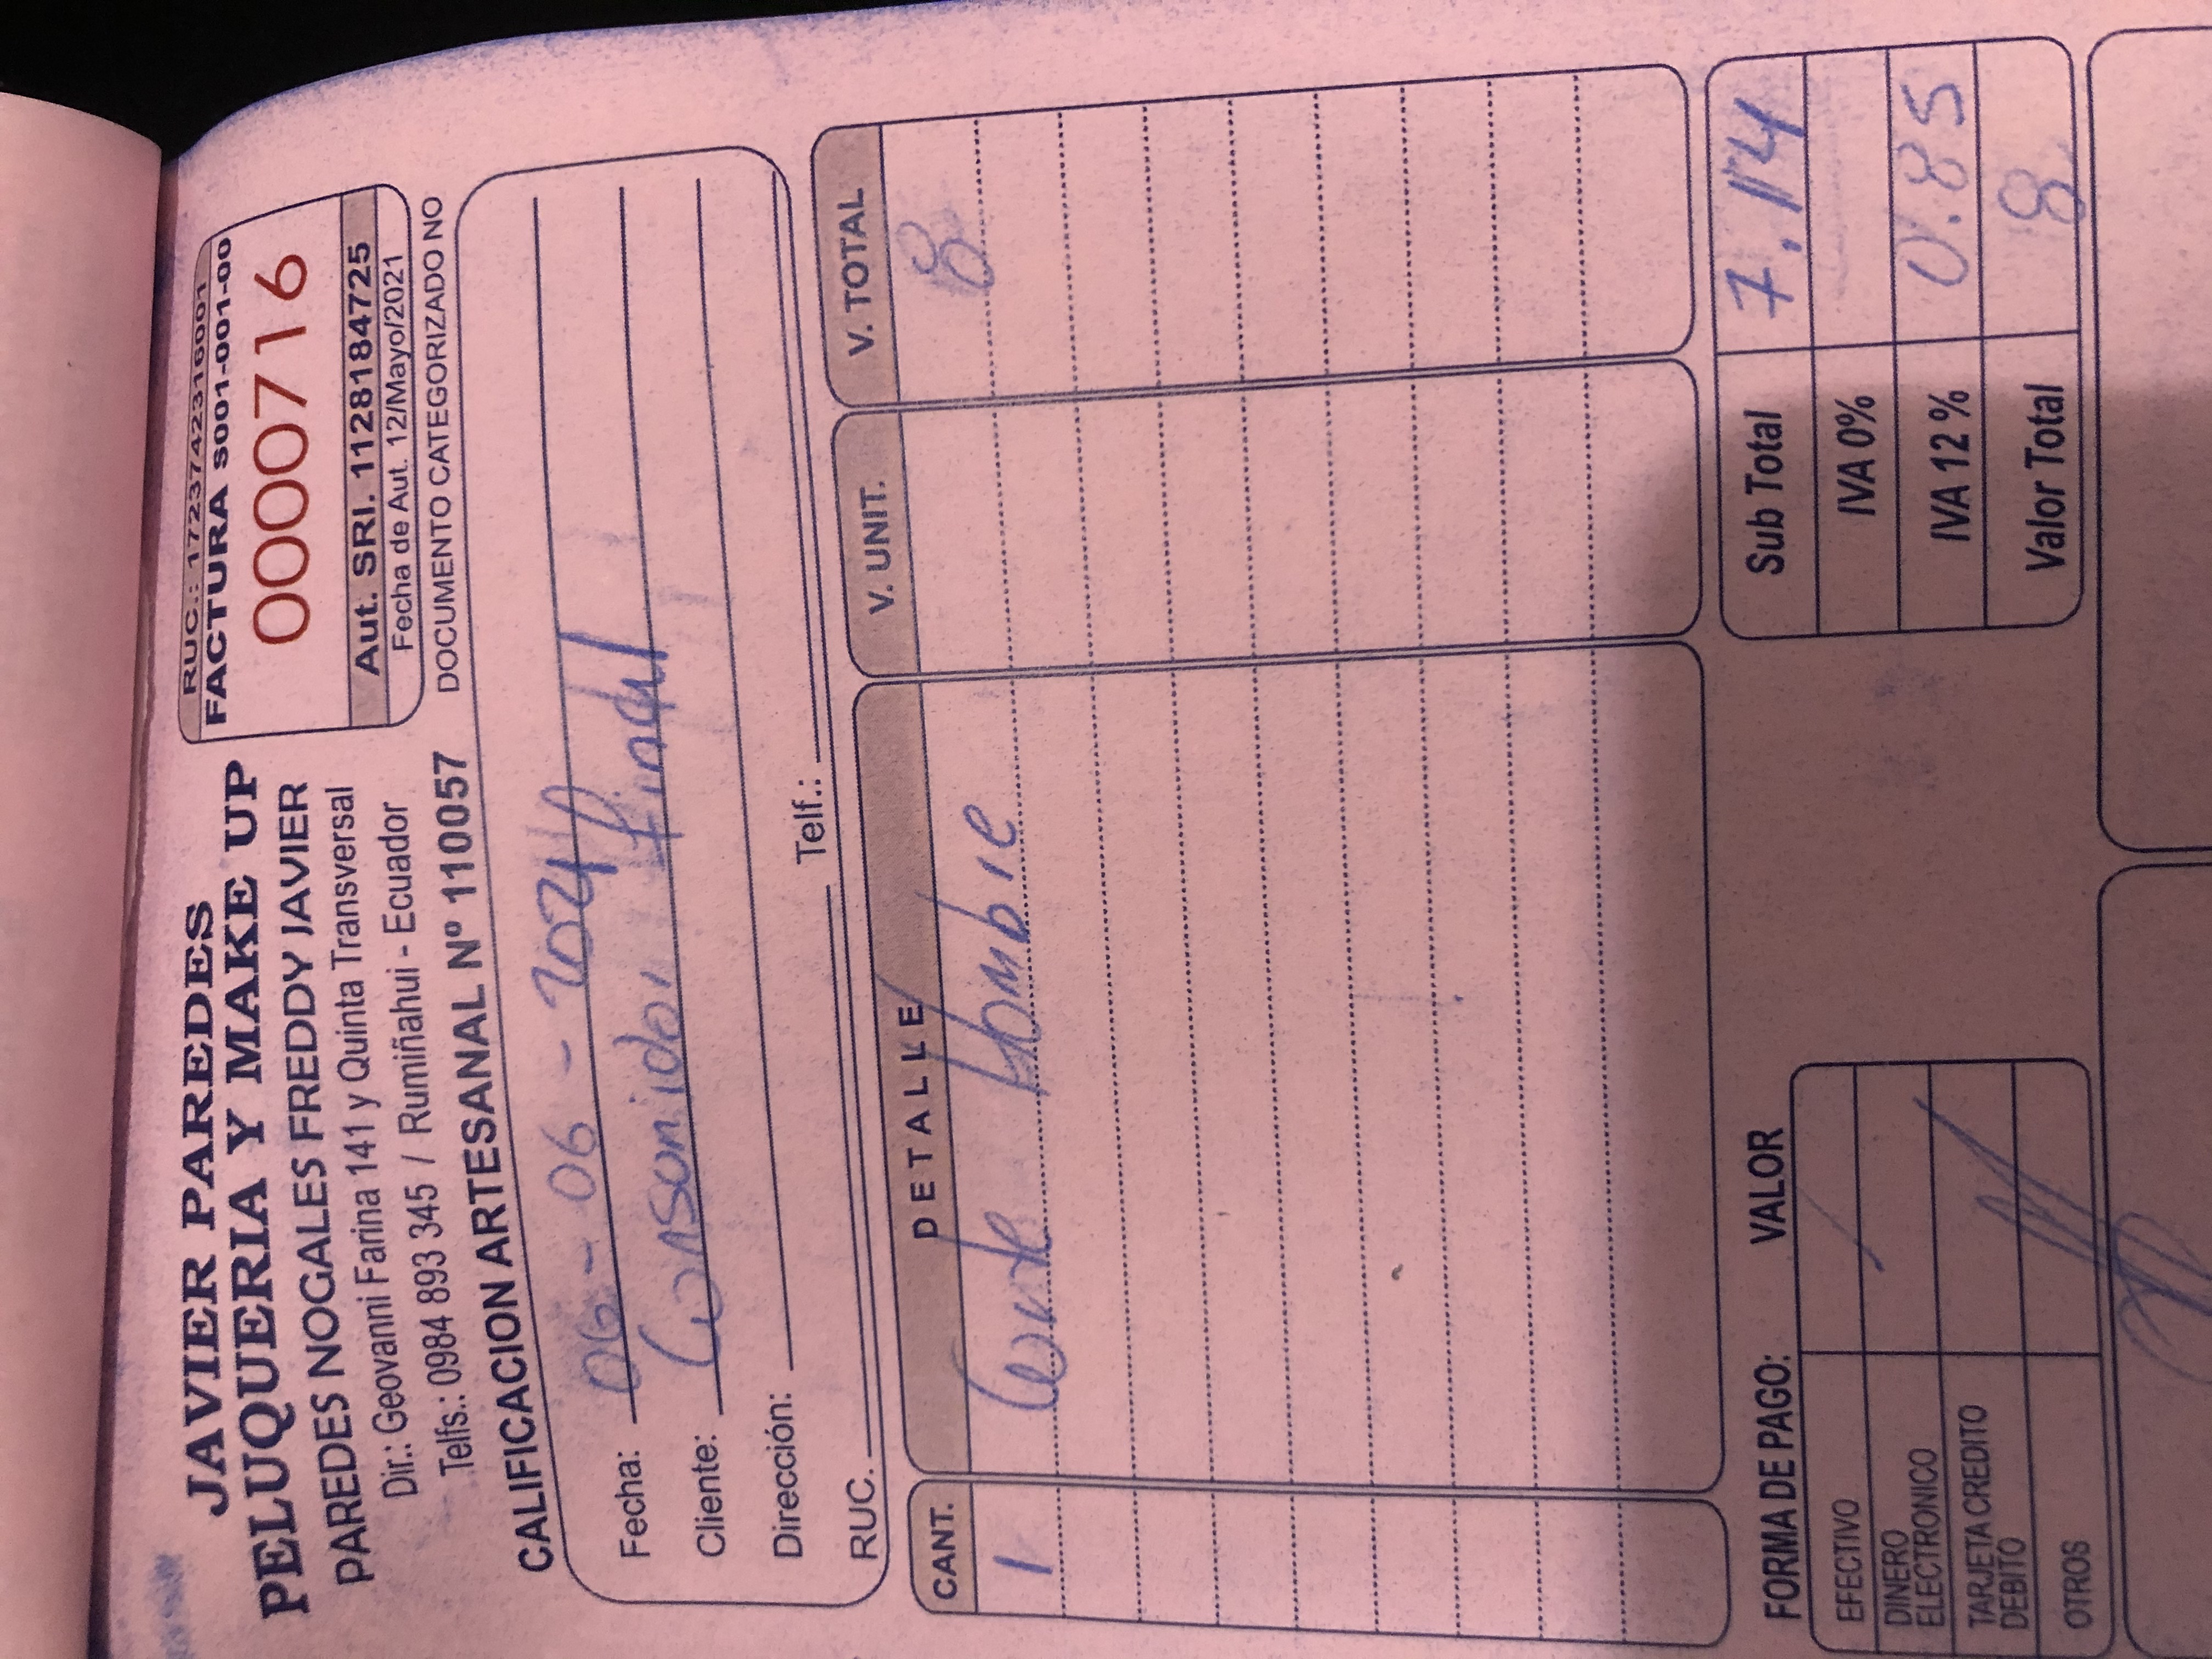 JAVIER PAREDES
PELUQUERIA Y MAKE UP
PAREDES NOGALES FREDDY JAVIER
Dir.: Geovanni Farina 141 y Quinta Transversal
Telfs.: 0984 893 345 / Rumiñahui - Ecuador
CALIFICACION ARTESANAL Nº 110057
RUC.: 1723742316001
FACTURA S001-001-00
0000716
Aut. SRI. 1128184725
Fecha de Aut. 12/Mayo/2021
DOCUMENTO CATEGORIZADO NO
Fecha: 06 - 06 - 2021
Cliente: Consumidor Final
Dirección:
RUC. Telf.:
CANT. DETALLE V. UNIT. V. TOTAL
1 Corte Hombre 8
FORMA DE PAGO: VALOR
EFECTIVO
DINERO
ELECTRONICO
TARJETA CREDITO
DEBITO
OTROS
Sub Total 7.14
IVA 0%
IVA 12 % 0.85
Valor Total 8